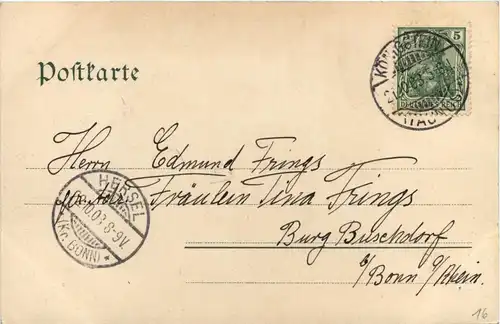 KÖNIGSTEIN
(TAUNUS)
5
DEUTSCHES REICH
Postkarte
Herrn Edmund Frings
Fräulein Tina Frings
Burg Buschdorf
b/Bonn a/Rhein.
HERSEL
10.03. 8-9V.
(Kr. BONN) *
16